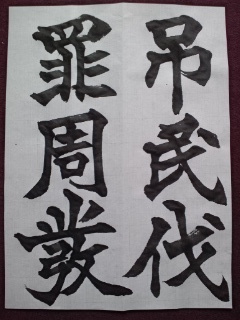 吊民伐
罪周發